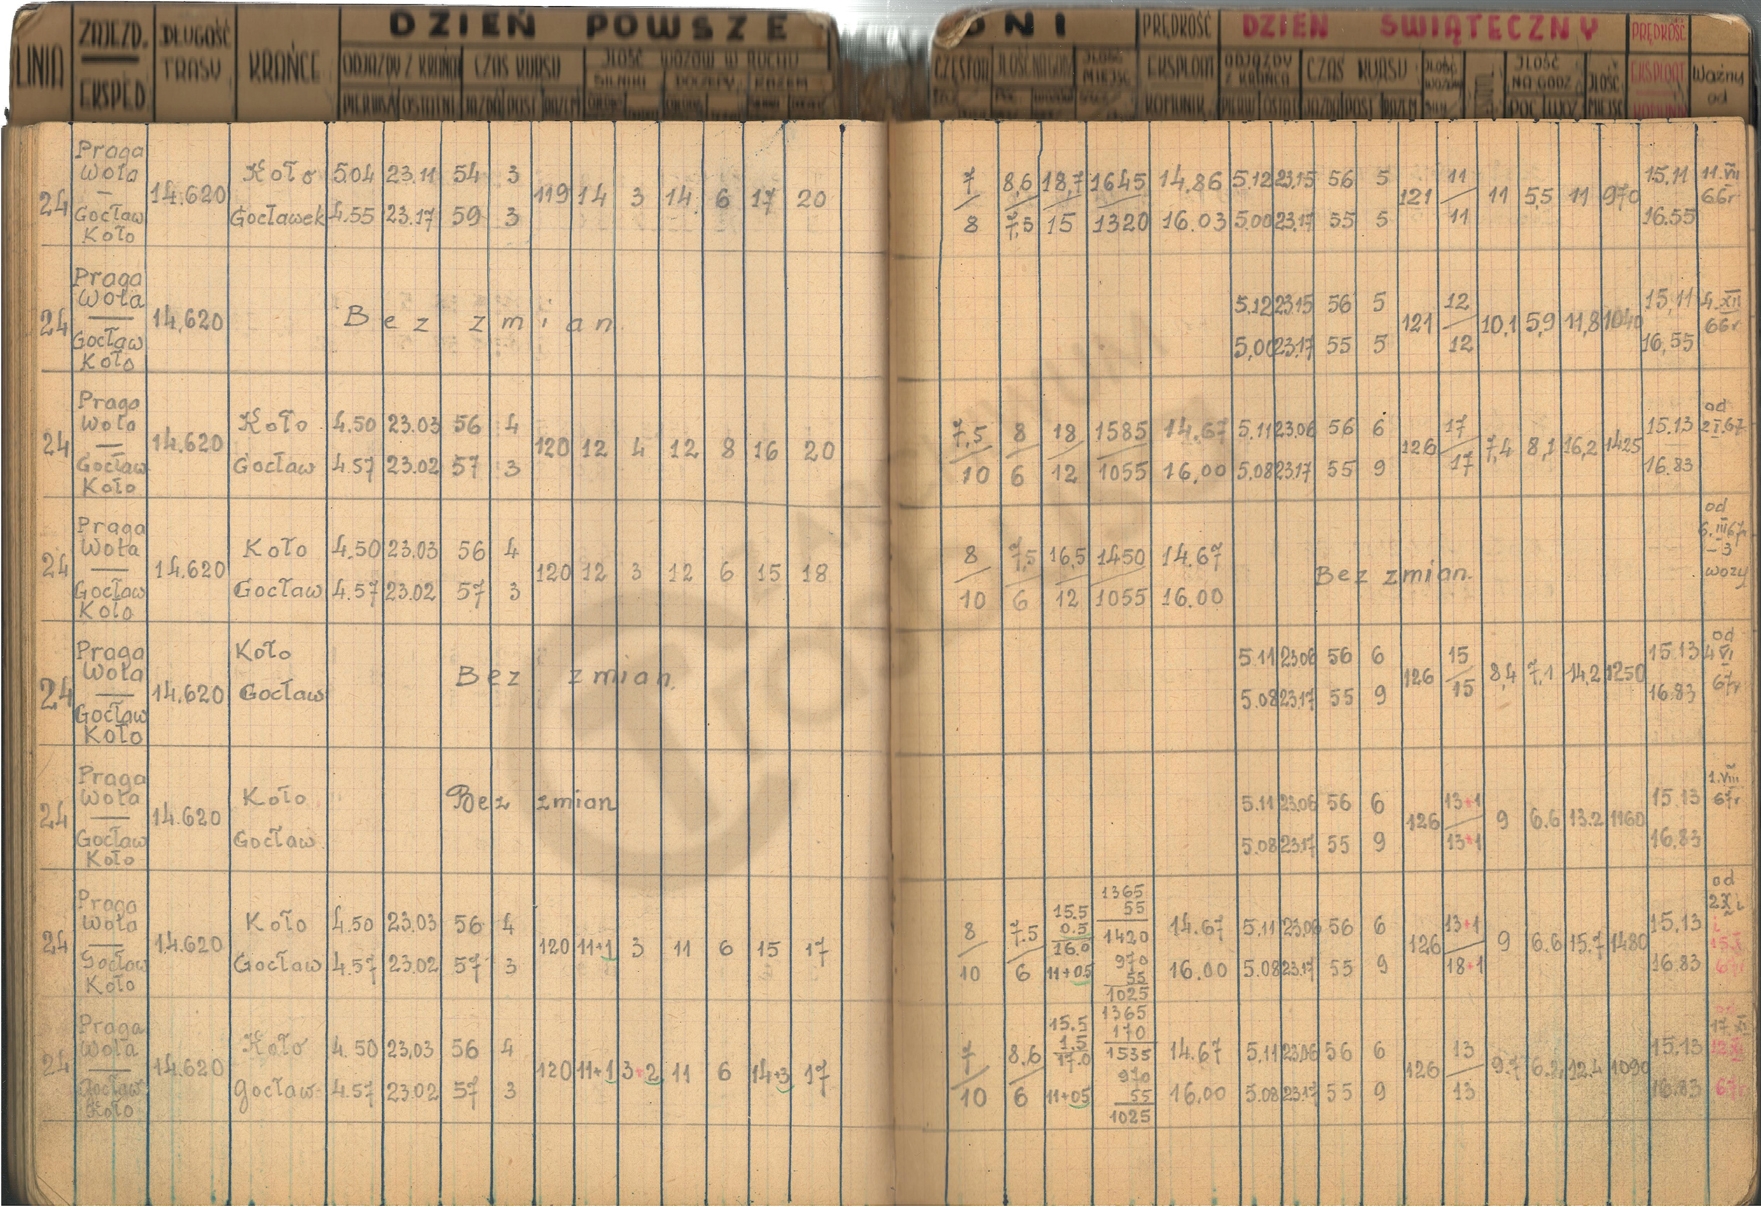 LINIA ZAJEZD. EKSPED. DŁUGOŚĆ TRASY KRAŃCE DZIEŃ POWSZE DNI PRĘDKOŚĆ DZIEŃ ŚWIĄTECZNY PRĘDKOŚĆ
ODJAZDY Z KRAŃCA CZAS KURSU ILOŚĆ WOZÓW W RUCHU EKSPLOAT KOMUNIK. ODJAZDY Z KRAŃCA CZAS KURSU ILOŚĆ NA GODZ EKSPLOAT Ważny od
Praga
Wola
—
Gocław
Koło
24 14.620
Koło 5.04 23.11 54 3
Gocławek 4.55 23.17 59 3
119 14 3 14 6 17 20
7 8,6 18,7 1645 14.86 5.12 23.15 56 5
8 7,5 15 1320 16.03 5.00 23.17 55 5
121 11 11 11 5,5 11 970 15.11 16.55
11.VII 66r
Praga
Wola
—
Gocław
Koło
24 14.620 Bez zmian
5.12 23.15 56 5
5,00 23.17 55 5
121 12 12 10,1 5,9 11,8 1040 15,11 16,55
4.XII 66r
Praga
Wola
—
Gocław
Koło
24 14.620
Koło 4.50 23.03 56 4
Gocław 4.57 23.02 57 3
120 12 4 12 8 16 20
7,5 8 18 1585 14.67 5.11 23.06 56 6
10 6 12 1055 16,00 5.08 23.17 55 9
126 17 17 7,4 8,1 16,2 1425 15.13 16.83
od 2I.67
Praga
Wola
—
Gocław
Koło
24 14.620
Koło 4.50 23.03 56 4
Gocław 4.57 23.02 57 3
120 12 3 12 6 15 18
8 7,5 16,5 1450 14.67
10 6 12 1055 16.00
Bez zmian.
od 6.III67r -3 wozy
Praga
Wola
—
Gocław
Koło
24 14.620
Koło
Gocław
Bez zmian.
5.11 23.06 56 6
5.08 23.17 55 9
126 15 15 8,4 7,1 14,2 1250 15.13 16.83
od 4VI 67r
Praga
Wola
—
Gocław
Koło
24 14.620
Koło
Gocław
Bez zmian
5.11 23.06 56 6
5.08 23.17 55 9
126 13+1 13+1 9 6.6 13.2 1160 15.13 16.83
1.VIII 67r
Praga
Wola
—
Gocław
Koło
24 14.620
Koło 4.50 23.03 56 4
Gocław 4.57 23.02 57 3
120 11+1 3 11 6 15 17
8 7.5 15.5 0.5 16.0 1365 55 1420 14.67 5.11 23.06 56 6
10 6 11+05 970 55 1025 16.00 5.08 23.17 55 9
126 13+1 18+1 9 6.6 15.7 1480 15,13 16.83
od 67r
Praga
Wola
—
Gocław
Koło
24 14.620
Koło 4.50 23,03 56 4
Gocław 4.57 23.02 57 3
120 11+1 3+2 11 6 14+3 17
7 8,6 15.5 1.5 17.0 1365 170 1535 14.67 5,11 23.06 56 6
10 6 11+05 970 55 1025 16,00 5.08 23.17 55 9
126 13 13 9.7 6.2 12.4 1090 15.13 16.83
67r